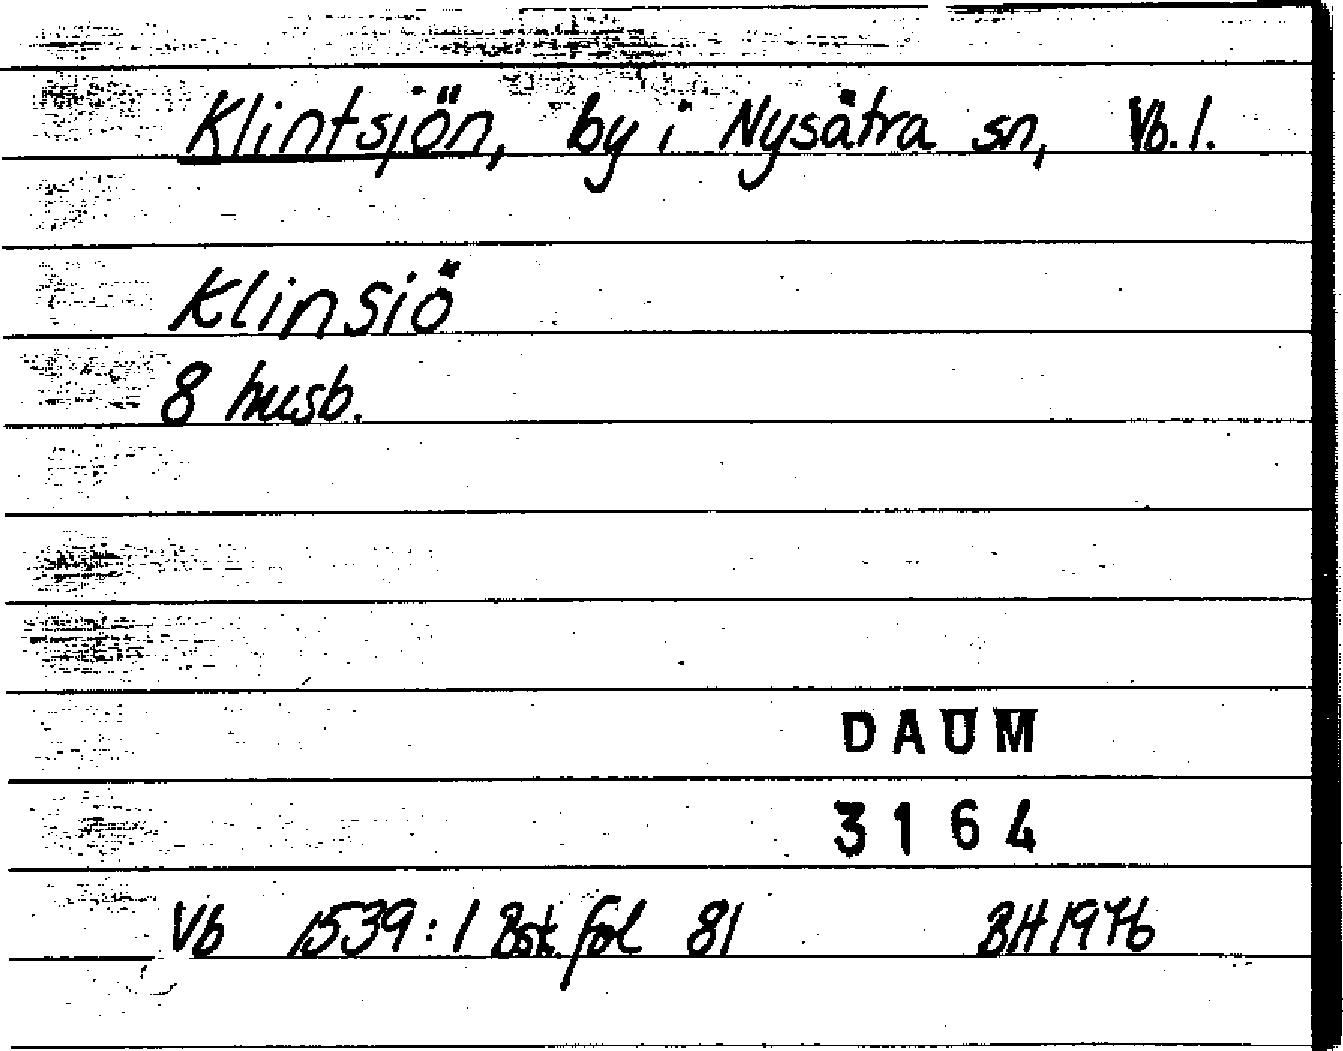 Klintsjön, by i Nysätra sn, Vb. l.
Klinsiö
8 husb.
DAUM
3164
Vb 1539:1 Bsk. fol 81 BH 1976